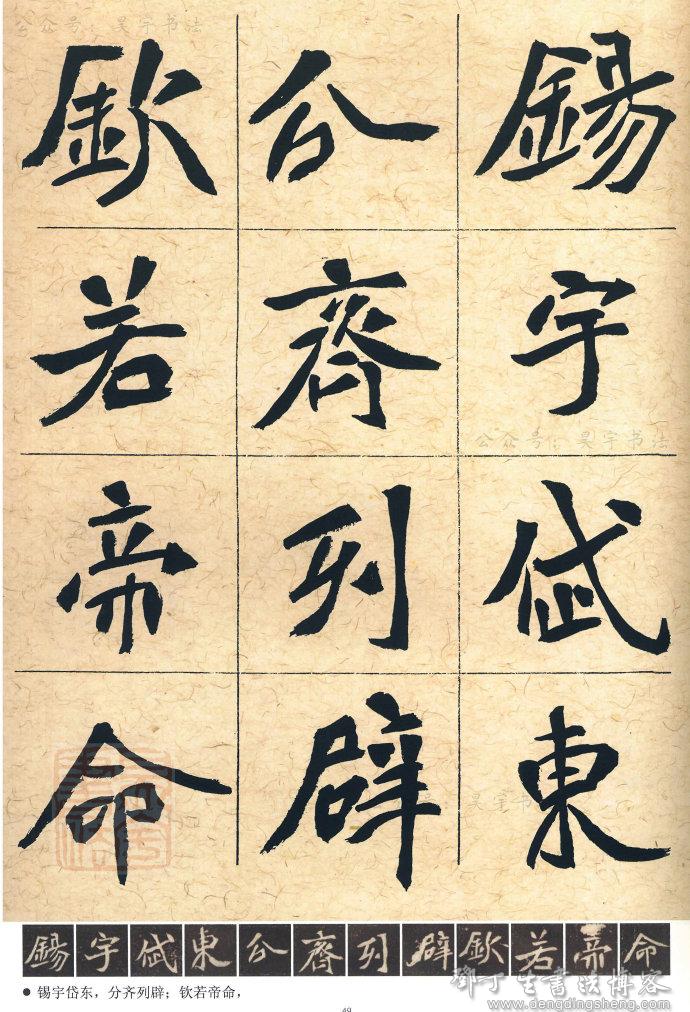 公众号：昊宇书法
錫宇岱東
分齊列辟
欽若帝命
公众号：昊宇书法
昊宇书
錫宇岱東分齊列辟欽若帝命
● 锡宇岱东，分齐列辟；钦若帝命，
鄧丁生書法博客
www.dengdingsheng.com
49